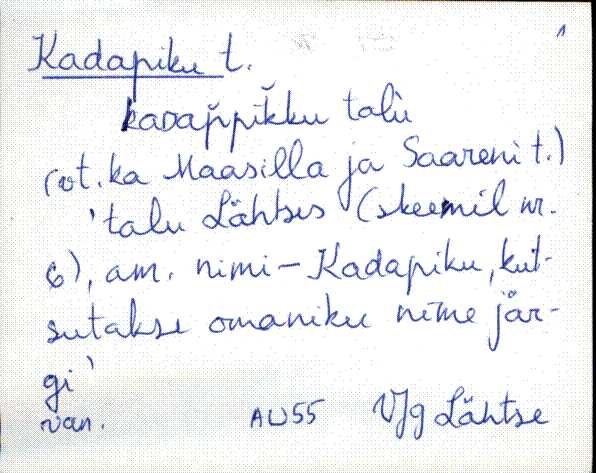 1
Kadapiku t.
kaᴅap̆pĭkku talù
(vt. ka Maasilla ja Saareni t.)
'talu Lähtses (skeemil nr.
6), am. nimi - Kadapiku, kut-
sutakse omaniku nime jär-
gi'
van. AU55 VJg Lähtse